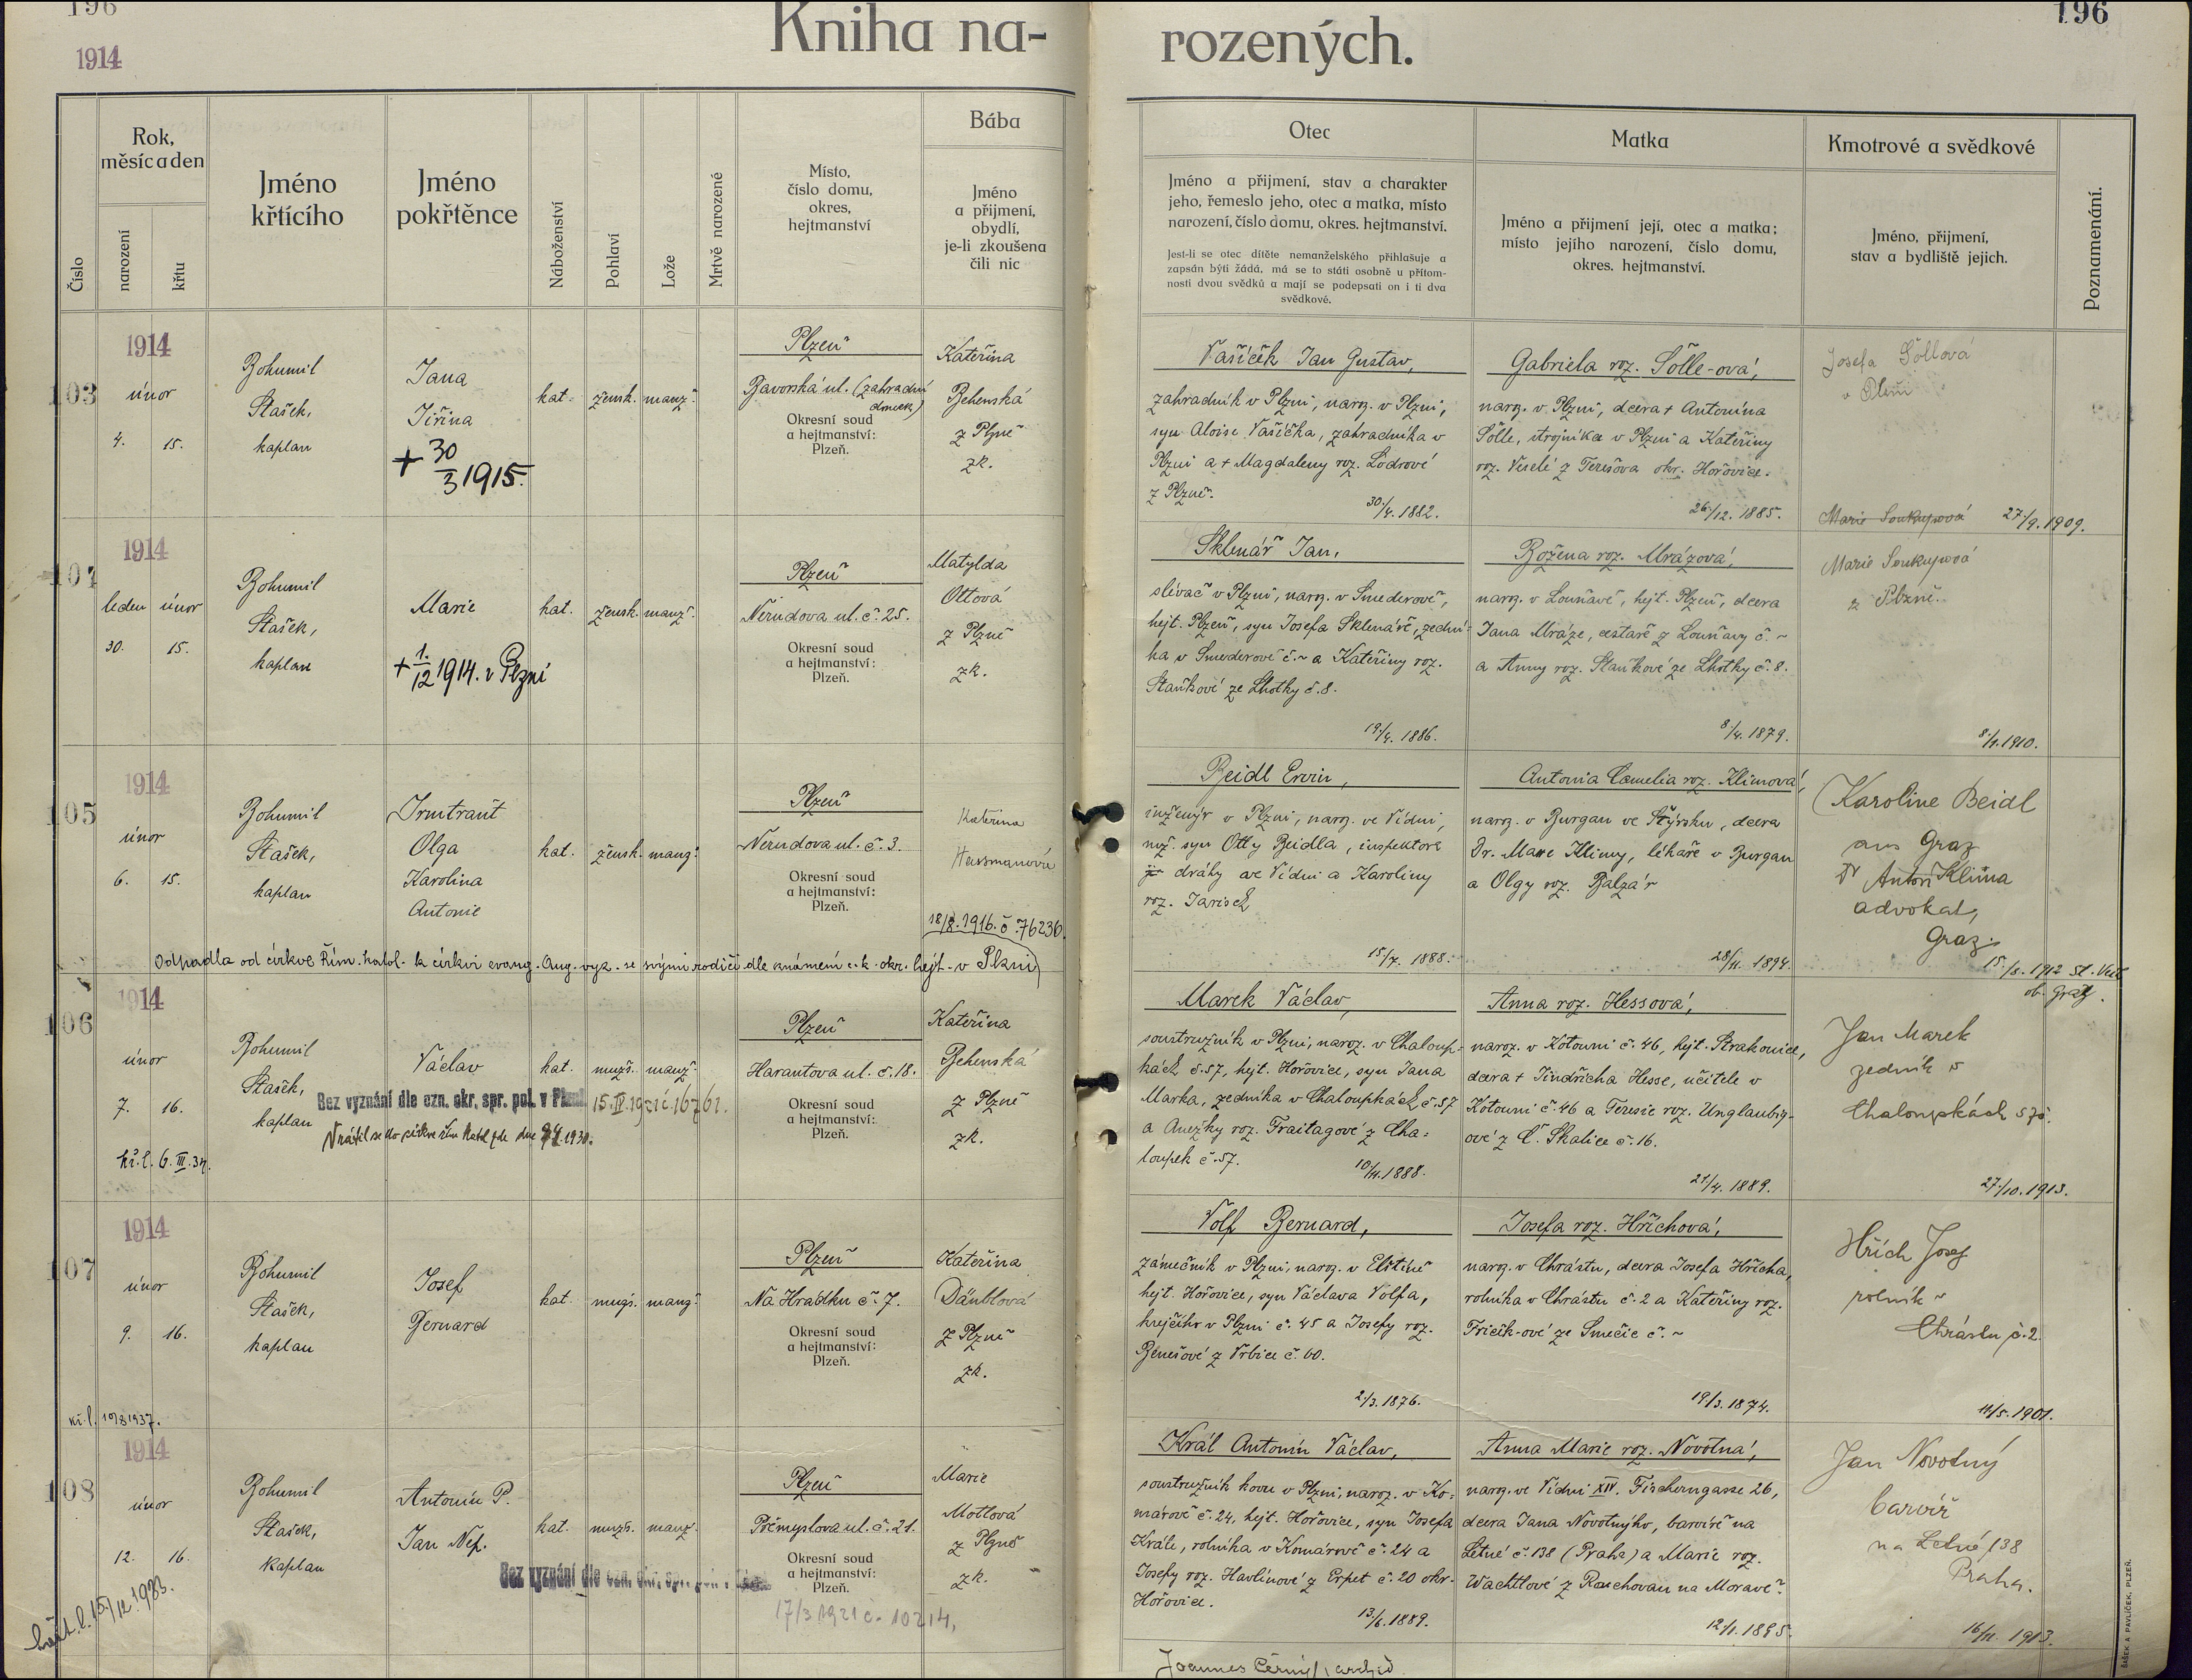 196
196
1914
Kniha na-
rozených.
Číslo
Rok,
měsíc a den
narození
křtu
Jméno
křtícího
Jméno
pokřtěnce
Náboženství
Pohlaví
Lože
Mrtvě narozené
Místo,
číslo domu,
okres,
hejtmanství
Bába
Jméno
a přijmení,
obydlí,
je-li zkoušena
čili nic
Otec
Jméno a přijmení, stav a charakter
jeho, řemeslo jeho, otec a matka, místo
narození, číslo domu, okres. hejtmanství.
Jest-li se otec dítěte nemanželského přihlašuje a
zapsán býti žádá, má se to státi osobně u přítom-
nosti dvou svědků a mají se podepsati on i ti dva
svědkové.
Matka
Jméno a přijmení její, otec a matka;
místo jejího narození, číslo domu,
okres. hejtmanství.
Kmotrové a svědkové
Jméno, přijmení,
stav a bydliště jejich.
Poznamenání.
1914
103
únor
4. 15.
Bohumil
Stašek,
kaplan
Jana
Jiřina
+ 30/3 1915.
kat. žensk. manž.
Plzeň
Bavorská ul. (zahradní
domek)
Okresní soud
a hejtmanství:
Plzeň.
Kateřina
Behenská
z Plzně
zk.
Vašíček Jan Gustav,
zahradník v Plzni, naroz. v Plzni,
syn Aloise Vašíčka, zahradníka v
Plzni a + Magdaleny roz. Lodrové
z Plzně.
30./4. 1882.
Gabriela roz. Sölle-ová,
naroz. v Plzni, dcera + Antonína
Sölle, strojníka v Plzni a Kateřiny
roz. Veselé z Terešova okr. Hořovice.
26./12. 1885.
Josefa Söllová
v Plzni
Marie Soukupová 27./9. 1909.
1914
104
leden únor
30. 15.
Bohumil
Stašek,
kaplan
Marie
+ 1./12 1914. v Plzni
kat. žensk. manž.
Plzeň
Nerudova ul. č. 25.
Okresní soud
a hejtmanství:
Plzeň.
Matylda
Ottová
z Plzně
zk.
Sklenář Jan,
slévač v Plzni, naroz. v Smederově,
hejt. Plzeň, syn Josefa Sklenáře, zední-
ka v Smederově č. ~ a Kateřiny roz.
Staňkové ze Lhotky č. 8.
19./4. 1886.
Božena roz. Mrázová,
naroz. v Louňavě, hejt. Plzeň, dcera
Jana Mráze, cestáře z Louňavy č. ~
a Anny roz. Staňkové ze Lhotky č. 8.
8./4. 1879.
Marie Soukupová
z Plzně.
8./1. 1910.
1914
105
únor
6. 15.
Bohumil
Stašek,
kaplan
Irmtraut
Olga
Karolina
Antonie
kat. žensk. manž.
Plzeň
Nerudova ul. č. 3.
Okresní soud
a hejtmanství:
Plzeň.
Kateřina
Hussmanová
18/8. 1916. č. 76236.
Odpadla od církve Řím. katol. k církvi evang. Aug. vyz. se svými rodiči dle známení c. k. okr. hejt. v Plzni
Beidl Ervin,
inženýr v Plzni, naroz. ve Vídni,
syn Otty Beidla, inspektora
dráhy ve Vídni a Karoliny
roz. Jarisch
15./7. 1888.
Antonia Cornelia roz. Klimová,
naroz. v Burgau ve Štýrsku, dcera
Dr. Maxe Klimy, lékaře v Burgau
a Olgy roz. Balzár
28/11. 1894.
Karoline Beidl
aus Graz
Dr Anton Klima
advokat,
Graz.
15./8. 1912 St. Veit
ob. Graz.
1914
106
únor
7. 16.
kř. l. 6. III. 34.
Bohumil
Stašek,
kaplan
Václav
kat. mužs. manž.
Bez vyznání dle ozn. okr. spr. pol. v Plzni 15. IV. 1921 č. 16761.
Vrátil se do církve řím. katol. zde dne 9/4. 1930.
Plzeň
Harantova ul. č. 18.
Okresní soud
a hejtmanství:
Plzeň.
Kateřina
Behenská
z Plzně
zk.
Marek Václav,
soustružník v Plzni, naroz. v Chaloup-
kách č. 57, hejt. Hořovice, syn Jana
Marka, zedníka v Chaloupkách č. 57
a Anežky roz. Fraitagové z Cha-
loupek č. 57.
10/11. 1888.
Anna roz. Hessová,
naroz. v Kotouni č. 46, hejt. Strakonice,
dcera + Jindřicha Hesse, učitele v
Kotouni č. 46 a Terezie roz. Unglaubig-
ové z Č. Skalice č. 16.
21/4. 1889.
Jan Marek
zedník v
Chaloupkách 57č.
27./10. 1913.
1914
107
únor
9. 16.
kř. l. 10/8 1937.
Bohumil
Stašek,
kaplan
Josef
Bernard
kat. mužs. manž.
Plzeň
Na Hrádku č. 7.
Okresní soud
a hejtmanství:
Plzeň.
Kateřina
Däublová
z Plzně
zk.
Volf Bernard,
zámečník v Plzni, naroz. v Elštině
hejt. Hořovice, syn Václava Volfa,
krejčího v Plzni č. 45 a Josefy roz.
Benešové z Vrbice č. 60.
2./3. 1876.
Josefa roz. Hříchová,
naroz. v Chrástu, dcera Josefa Hřícha,
rolníka v Chrástu č. 2 a Kateřiny roz.
Fricik-ové ze Smečic č. ~
19/3. 1874.
Hřích Josef
rolník v
Chrástu č. 2
11/5. 1901.
1914
108
únor
12. 16.
křest. l. 15./12. 1933.
Bohumil
Stašek,
kaplan
Antonín P.
Jan Nep.
kat. mužs. manž.
Bez vyznání dle ozn. okr. spr. pol.
17/3 1921 č. 10214,
Plzeň
Přemyslova ul. č. 21.
Okresní soud
a hejtmanství:
Plzeň.
Marie
Mottlová
z Plzně
zk.
Král Antonín Václav,
soustružník kovu v Plzni, naroz. v Ko-
márově č. 24, hejt. Hořovice, syn Josefa
Krále, rolníka v Komárově č. 24 a
Josefy roz. Havlínové z Erpet č. 20 okr.
Hořovice.
13/6. 1889.
Anna Marie roz. Novotná,
naroz. ve Vídni XIV. Fischerngasse 26,
dcera Jana Novotného, barvíře na
Letné č. 138 (Praha) a Marie roz.
Wachtlové z Rouchovan na Moravě.
12/1. 1895.
Jan Novotný
barvíř
na Letné 138
Praha.
16/11. 1913.
Joannes Černý, archid
ŠAŠEK A PAVLÍČEK, PLZEŇ.